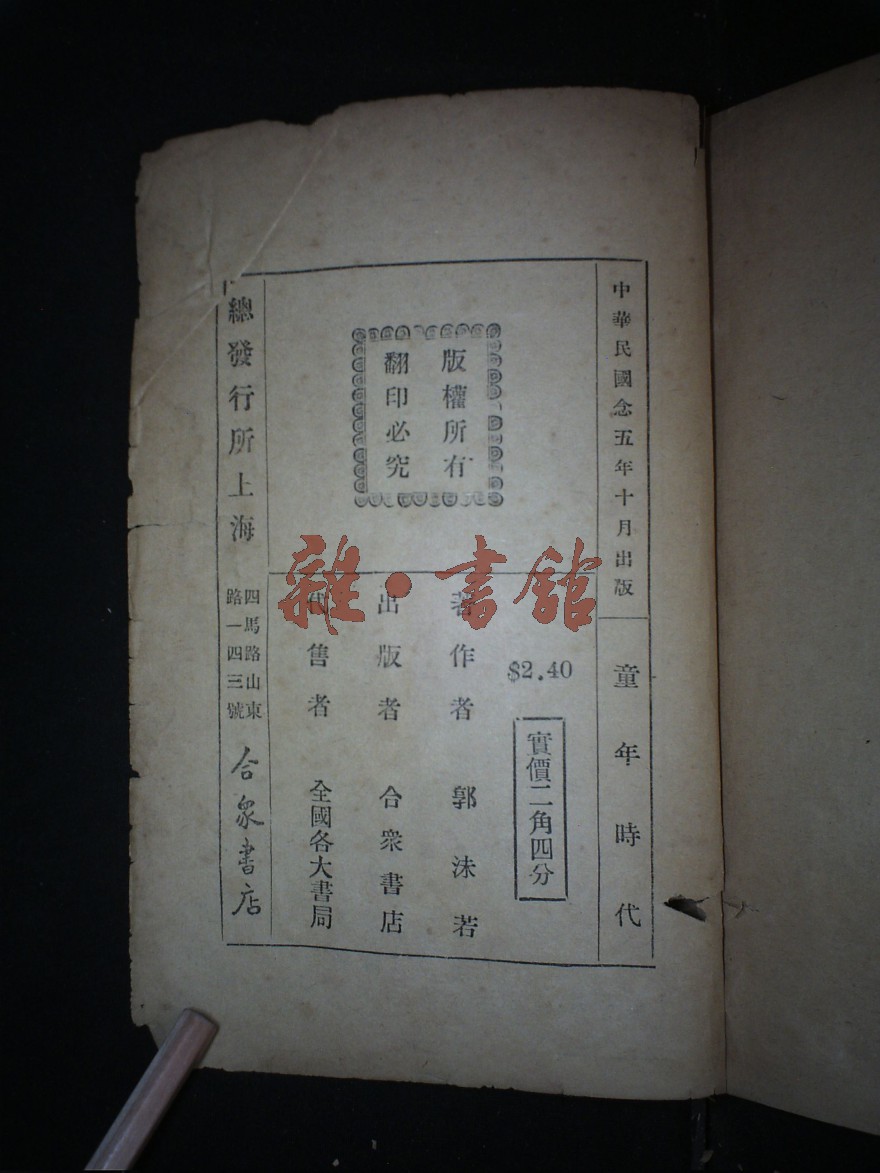 中華民國念五年十月出版
童年時代
版權所有
翻印必究
$2.40
實價二角四分
著作者 郭沫若
出版者 合衆書店
代售者 全國各大書局
總發行所上海
四馬路山東
路一四三號
合衆書店
雜·書館